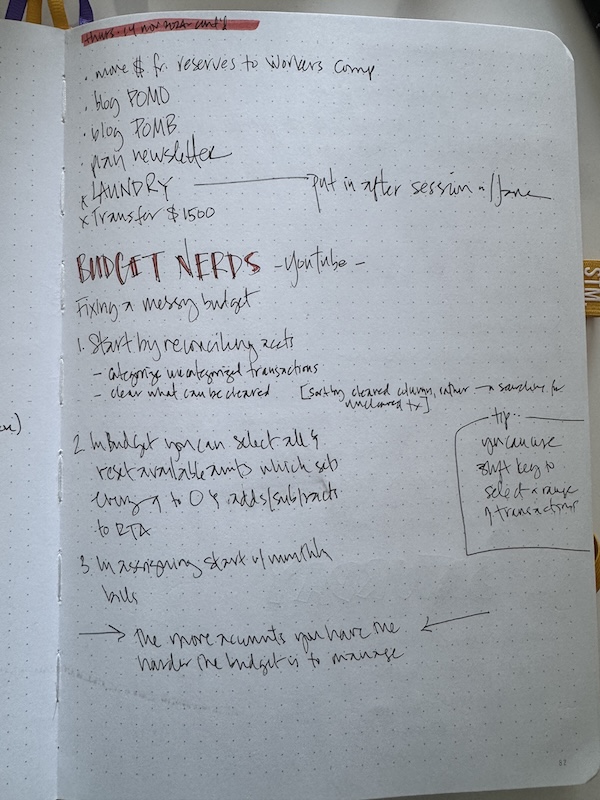 thurs · 14 nov 2024 · cont'd
· more $ fr. reserves to workers comp
· blog POMO
· blog POMB
· pay newsletter
x LAUNDRY put in after session w/ Jane
x Transfer $1500
BUDGET NERDS - Youtube -
Fixing a messy budget
1. Start by reconciling accts
- categorize uncategorized transactions
- clear what can be cleared [sort by cleared column, rather searching for
uncleared tx]
2 In Budget you can select all &
reset available amts which sets
to 0 & adds/subtracts
to RTA
·· tip ··
you can use
shift key to
select a range
of transactions
3 In assigning start w/ monthly
bills
→ The more accounts you have the ←
harder the budget is to manage
STM
62